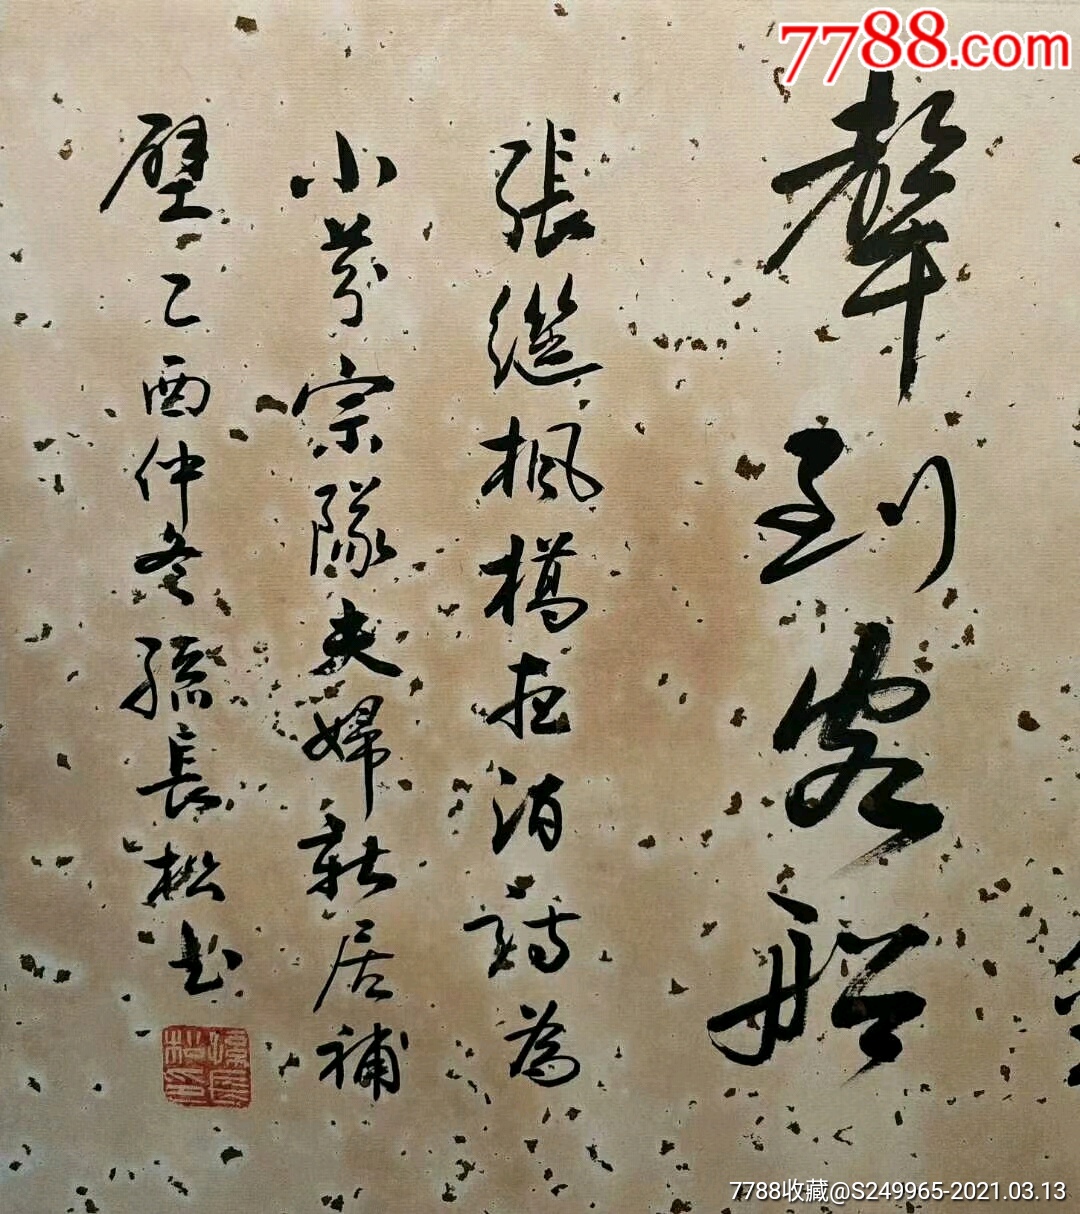 7788.com
聲到客船
張繼楓橋夜泊詩為
小芬宗隊夫婦新居補
壁乙酉仲冬孫長松书
孫長松印
7788收藏@S249965-2021.03.13